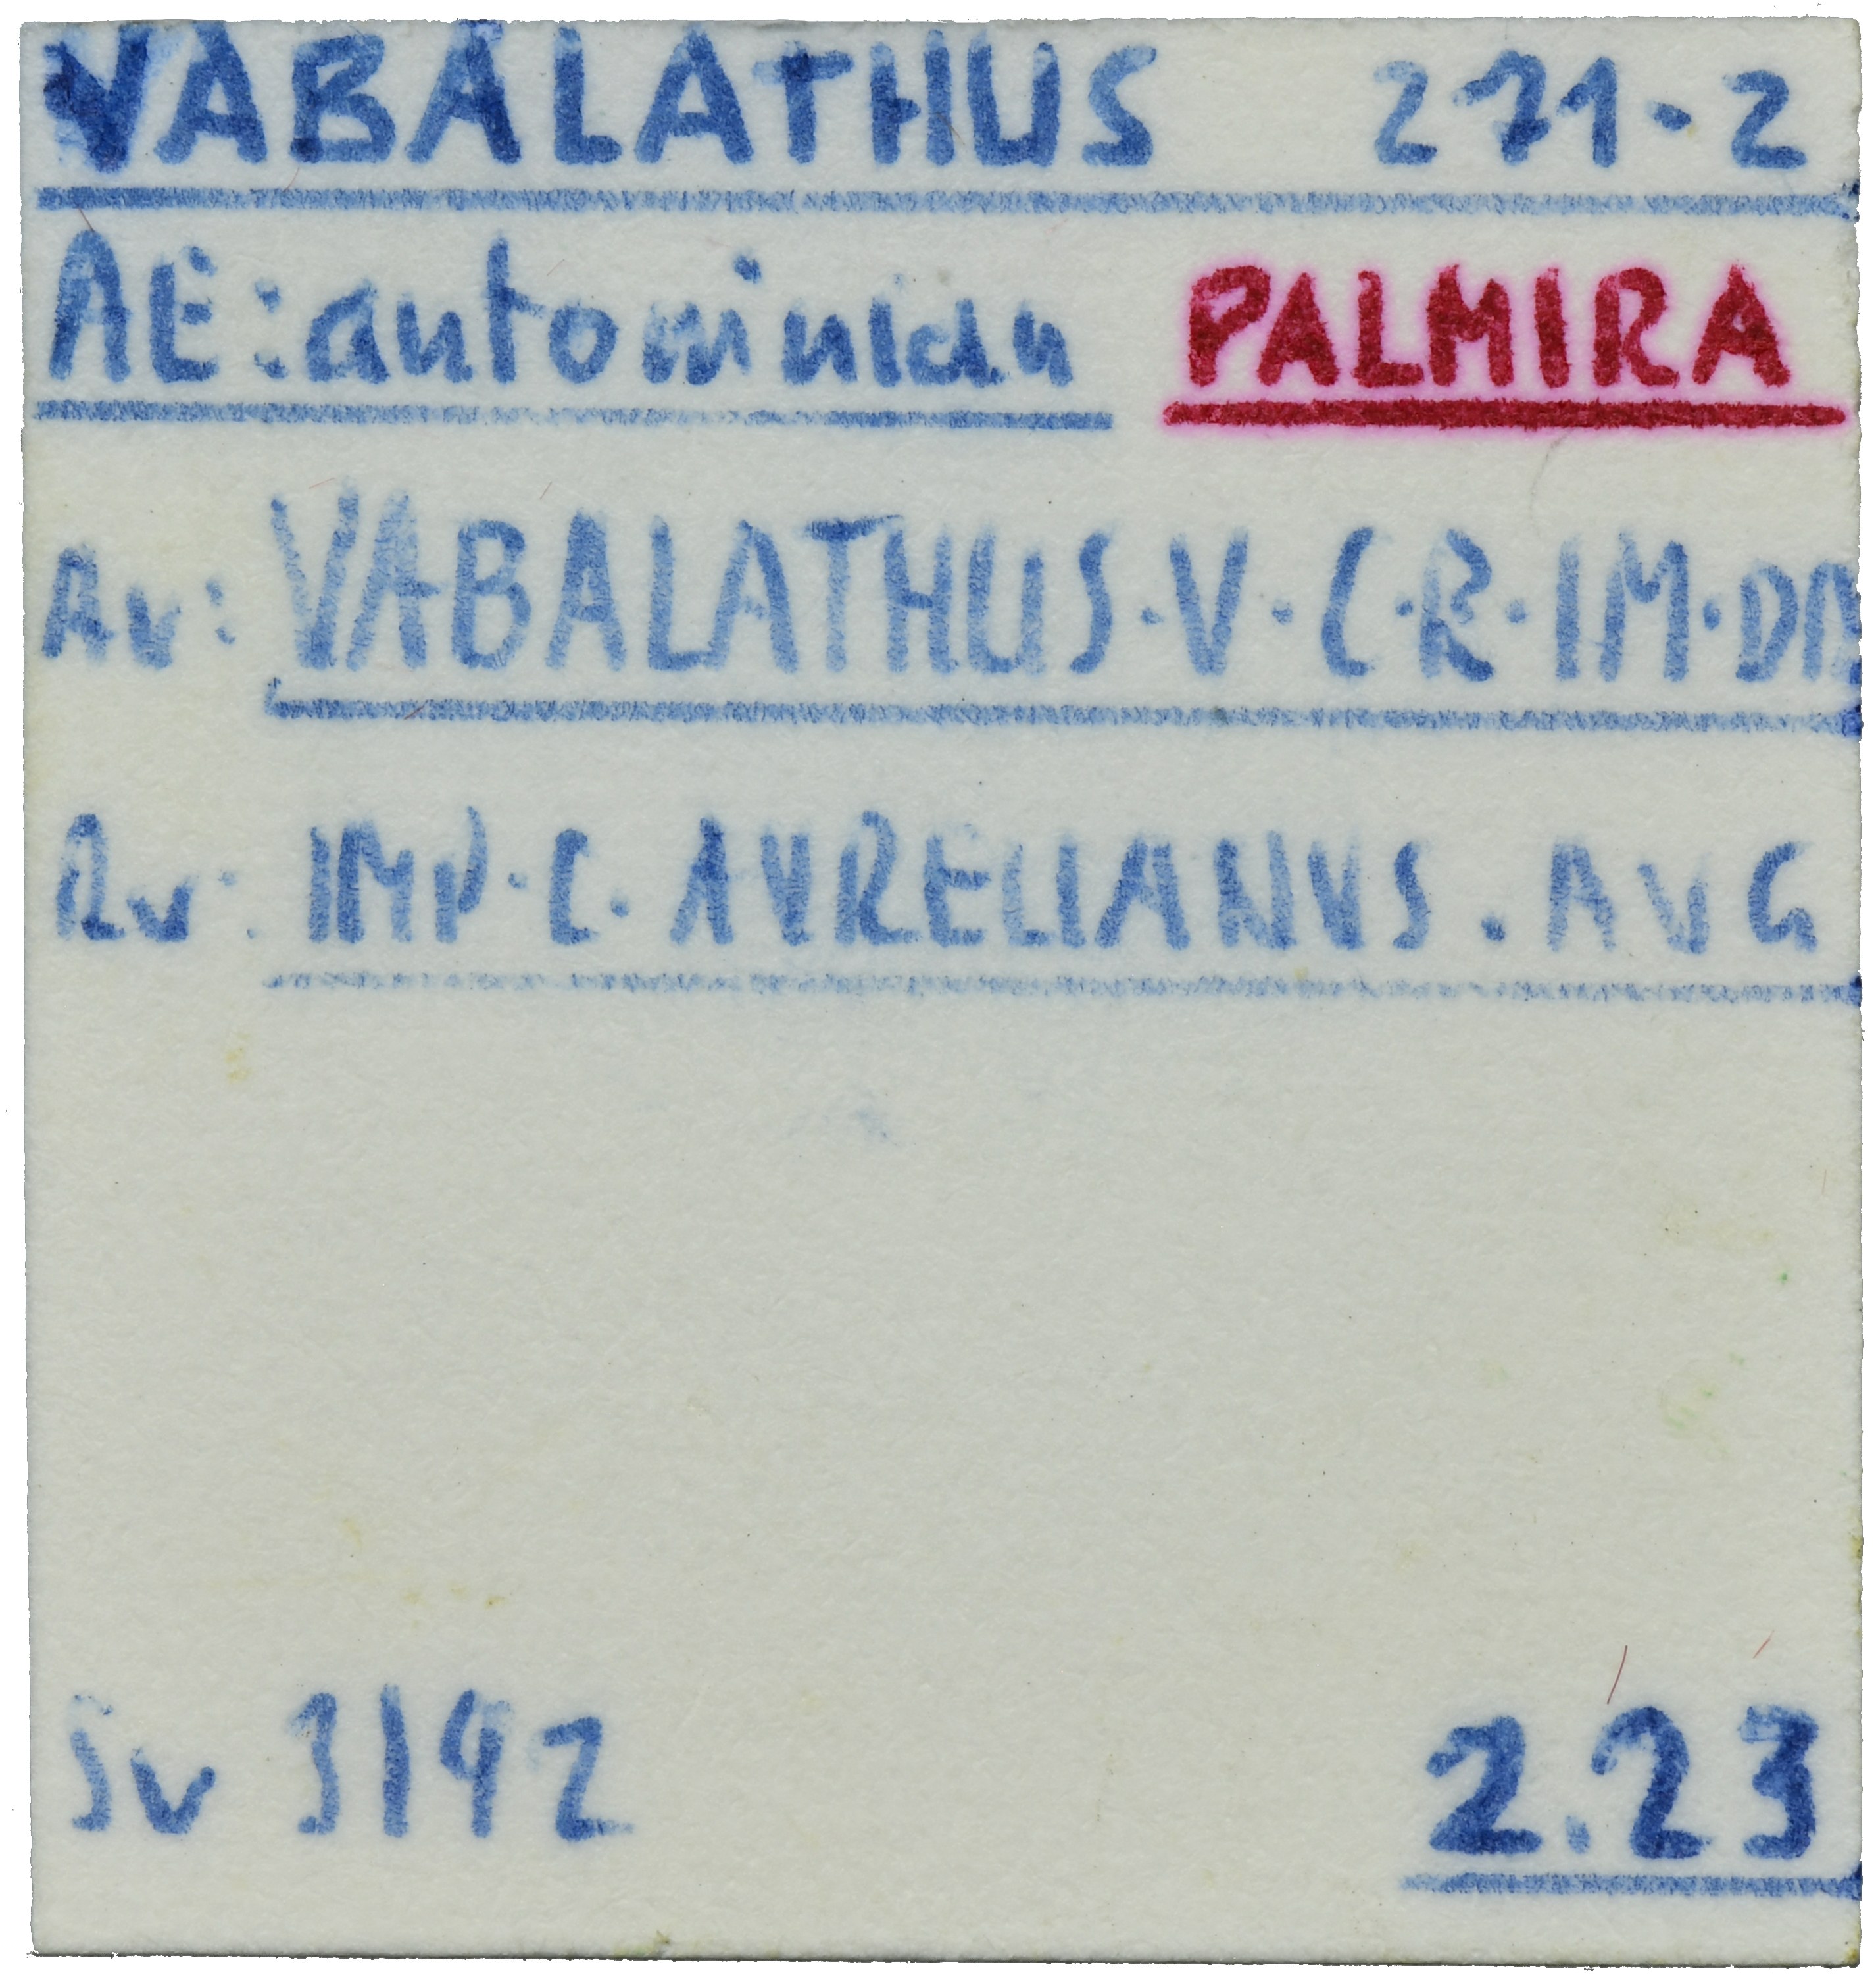 VABALATHUS 271-2
AE: antoninian PALMIRA
Av: VABALATHUS·V·C·R·IM·DN
Rv: IMP·C·AVRELIANVS·AVG
Sv 3192
2.23